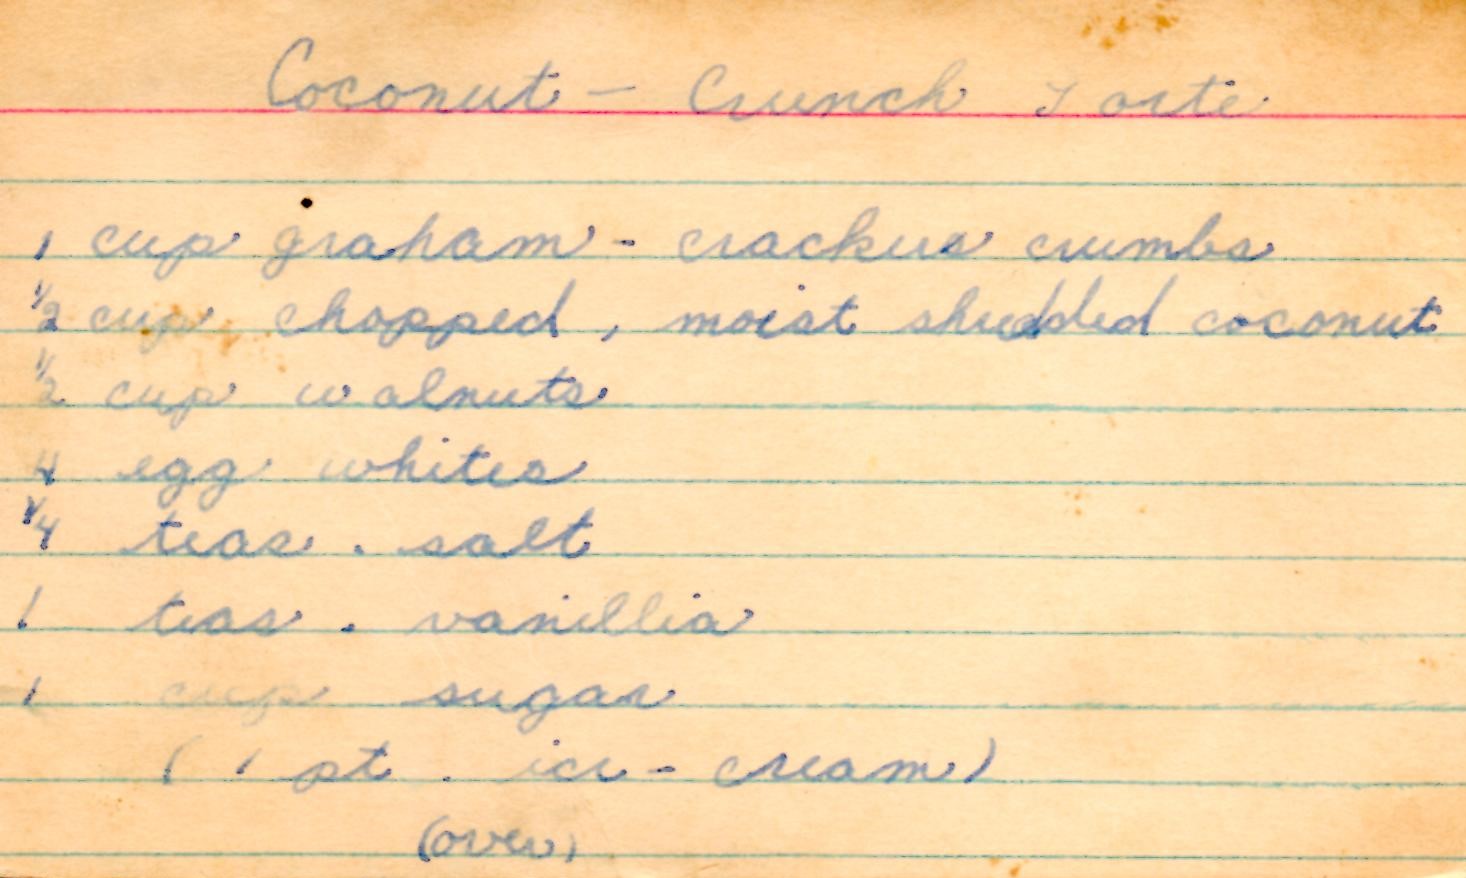 Coconut - Crunch Torte
1 cup graham - crackers crumbs
1/2 cup chopped, moist shredded coconut
1/2 cup walnuts
4 egg whites
1/4 teas. salt
1 teas. vanillia
1 cup sugar
(1 pt. ice - cream)
(over)